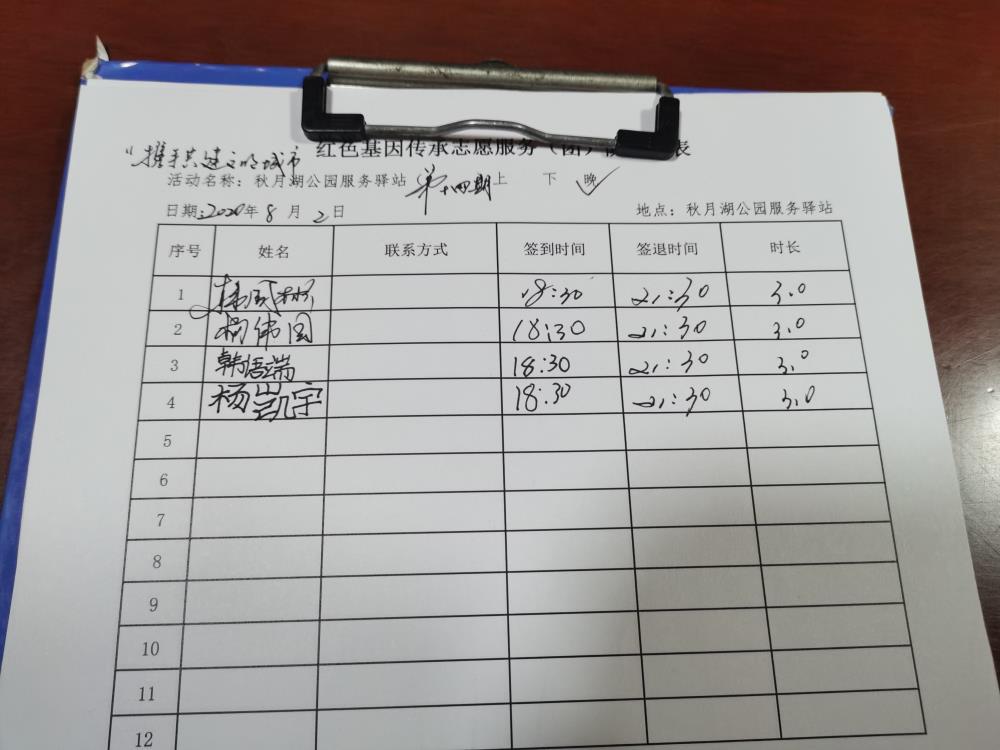 携手共建文明城市 红色基因传承志愿服务（团） 表
活动名称：秋月湖公园服务驿站 第十四期 上 下 晚✓
日期：2020年8月2日 地点：秋月湖公园服务驿站
序号 姓名 联系方式 签到时间 签退时间 时长
1 18:30 21:30 3.0
2 杨伟国 18:30 21:30 3.0
3 韩语端 18:30 21:30 3.0
4 杨凯宇 18:30 21:30 3.0
5
6
7
8
9
10
11
12